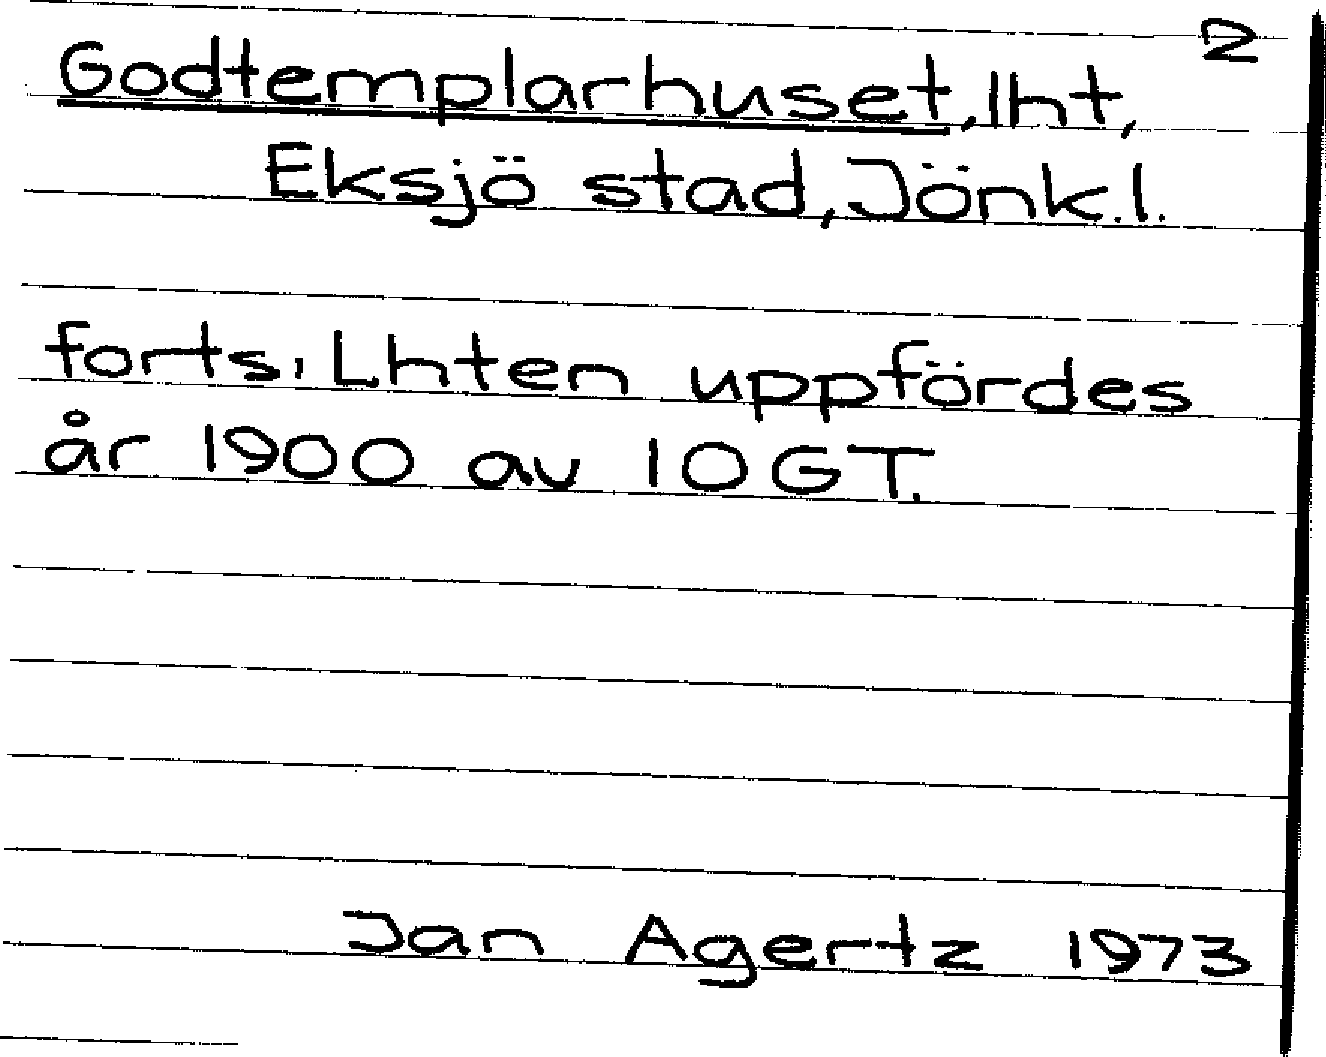 2
Godtemplarhuset, lht,
Eksjö stad, Jönk.l.
forts, Lhten uppfördes
år 1900 av IOGT.
Jan Agertz 1973